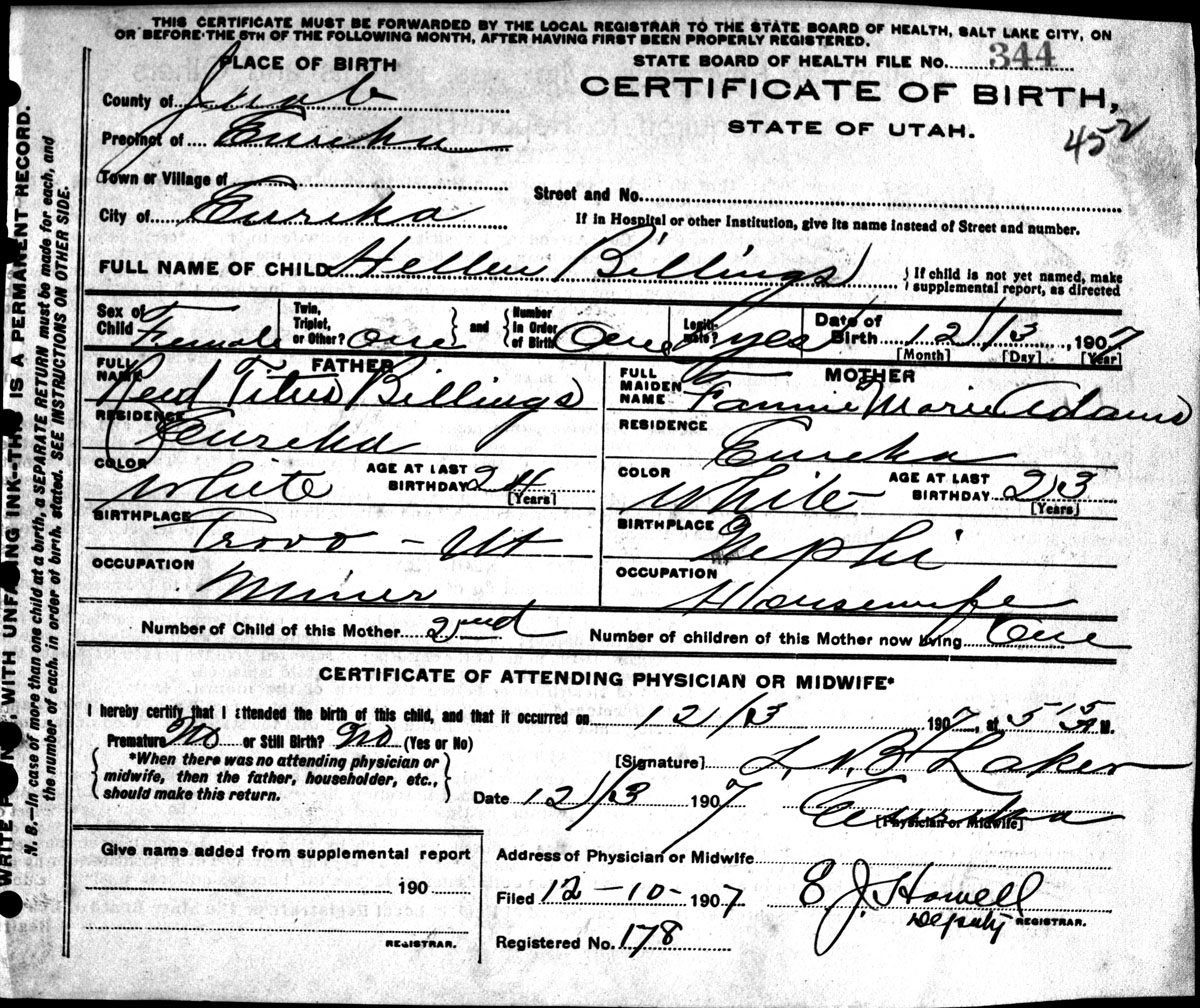 THIS CERTIFICATE MUST BE FORWARDED BY THE LOCAL REGISTRAR TO THE STATE BOARD OF HEALTH, SALT LAKE CITY, ON
OR BEFORE THE 5TH OF THE FOLLOWING MONTH, AFTER HAVING FIRST BEEN PROPERLY REGISTERED.
STATE BOARD OF HEALTH FILE NO. 344
CERTIFICATE OF BIRTH,
STATE OF UTAH.
452
PLACE OF BIRTH
County of Juab
Precinct of Eureka
Town or Village of
City of Eureka
Street and No.
If in Hospital or other Institution, give its name instead of Street and number.
FULL NAME OF CHILD Hellen Billings
If child is not yet named, make supplemental report, as directed
Sex of Child Female
Twin, Triplet, or Other? One
and Number In Order of Birth One
Legitimate? yes
Date of Birth 12/3 1907
[Month] [Day] [Year]
FATHER
FULL NAME Reed Titus Billings
RESIDENCE Eureka
COLOR White AGE AT LAST BIRTHDAY 24 [Years]
BIRTHPLACE Provo - Ut
OCCUPATION Miner
MOTHER
FULL MAIDEN NAME Fannie Marie Adams
RESIDENCE Eureka
COLOR White AGE AT LAST BIRTHDAY 23 [Years]
BIRTHPLACE Nephi
OCCUPATION Housewife
Number of Child of this Mother 2nd Number of children of this Mother now living One
CERTIFICATE OF ATTENDING PHYSICIAN OR MIDWIFE*
I hereby certify that I attended the birth of this child, and that it occurred on 12/3 1907, at 5 15 A M.
Premature No or Still Birth? No (Yes or No)
*When there was no attending physician or
midwife, then the father, householder, etc.,
should make this return.
[Signature] Laker
Date 12/3 1907 Eureka
[Physician or Midwife]
Give name added from supplemental report
190
REGISTRAR.
Address of Physician or Midwife
Filed 12-10-1907 E. J. Howell
Deputy REGISTRAR.
Registered No. 178
WRITE WITH UNFADING INK-THIS IS A PERMANENT RECORD.
N. B.—In case of more than one child at a birth, a SEPARATE RETURN must be made for each, and
the number of each, in order of birth, stated. SEE INSTRUCTIONS ON OTHER SIDE.